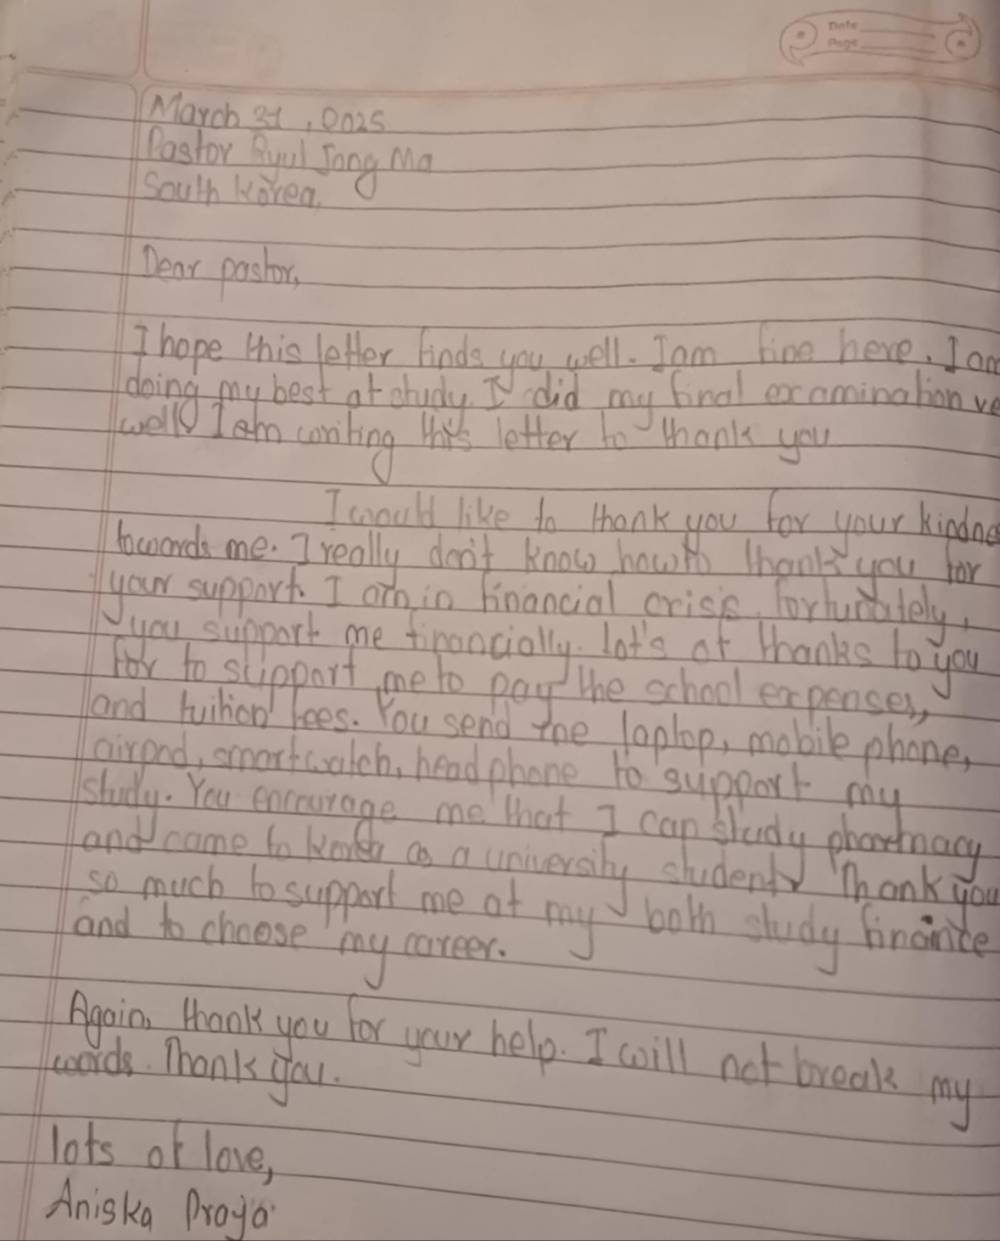 Date
Page
March 31, 2025
Pastor Ryul Jong Ma
South Korea,
Dear pastor,
I hope this letter finds you well. I am fine here. I am
doing my best at study. I did my final examination ve
well I am writing this letter to thank you
I would like to thank you for your kindne
towards me. I really don't know how to thank you for
your support. I am in financial crisis fortunately,
you support me financially. lot's of thanks to you
for to support me to pay the school expenses,
and tuition fees. You send me laptop, mobile phone,
airpod, smartwatch, headphone to support my
study. You encourage me that I can study pharmacy
and came to Korea as a university student Thank you
so much to support me at my both study finance
and to choose my career.
Again, thank you for your help. I will not break my
words. Thank you.
lots of love,
Aniska Praya